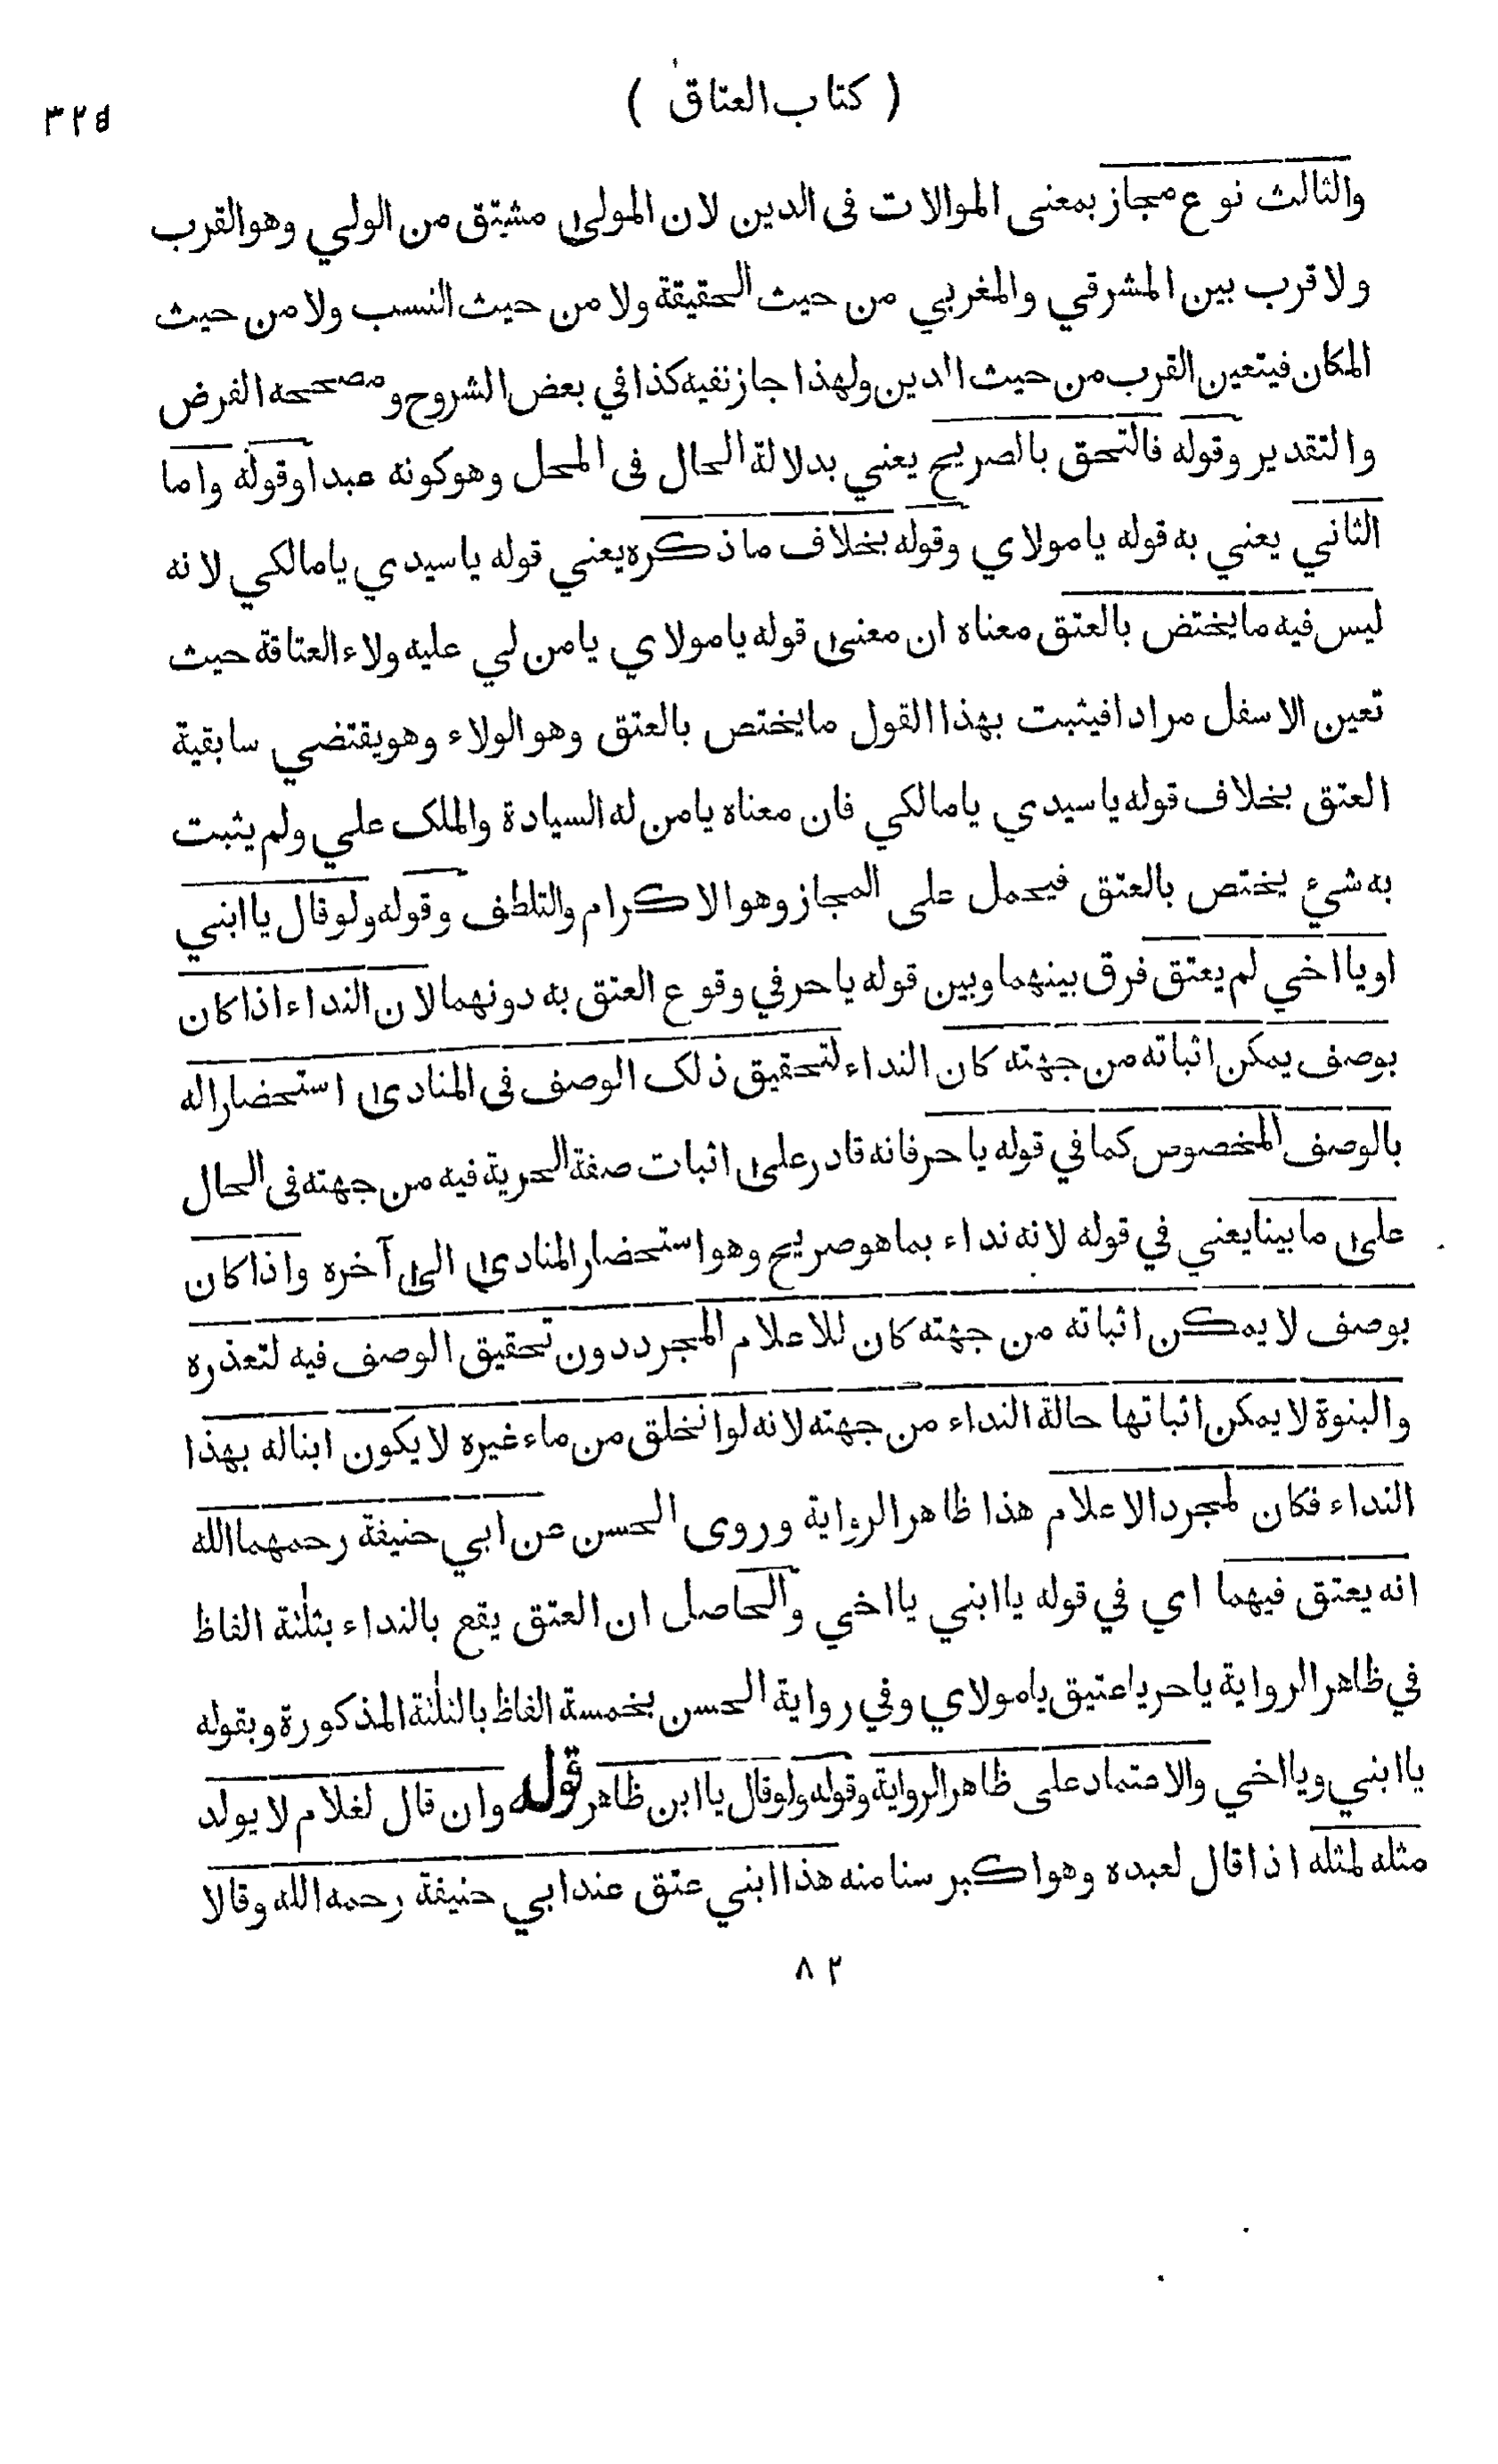 ( كتاب العتاق )
٣٢٥
والثالث نوع مجاز بمعنى الموالات فى الدين لان المولىٰ مشتق من الولي وهو القرب
ولا قرب بين المشرقي والمغربي من حيث الحقيقة ولا من حيث النسب ولا من حيث
المكان فيتعين القرب من حيث الدين ولهذا جاز نفيه كذا في بعض الشروح ومصححه الفرض
والتقدير وقوله فالتحق بالصريح يعني بدلالة الحال فى المحل وهو كونه عبدا وقوله واما
الثاني يعني به قوله يا مولاي وقوله بخلاف ما ذكره يعني قوله يا سيدي يا مالكي لانه
ليس فيه ما يختص بالعتق معناه ان معنىٰ قوله يا مولاي يا من لي عليه ولاء العتاقة حيث
تعين الاسفل مرادا فيثبت بهذا القول ما يختص بالعتق وهو الولاء وهو يقتضي سابقية
العتق بخلاف قوله يا سيدي يا مالكي فان معناه يا من له السيادة والملك علي ولم يثبت
به شيء يختص بالعتق فيحمل على المجاز وهو الاكرام والتلطف وقوله ولو قال يا ابني
او يا اخي لم يعتق فرق بينهما وبين قوله يا حر في وقوع العتق به دونهما لان النداء اذا كان
بوصف يمكن اثباته من جهته كان النداء لتحقيق ذلك الوصف فى المنادىٰ استحضارا له
بالوصف المخصوص كما في قوله يا حر فانه قادر علىٰ اثبات صفة الحرية فيه من جهته فى الحال
علىٰ ما بينا يعني في قوله لانه نداء بما هو صريح وهو استحضار المنادىٰ الىٰ آخره واذا كان
بوصف لا يمكن اثباته من جهته كان للاعلام المجرد دون تحقيق الوصف فيه لتعذره
والبنوة لا يمكن اثباتها حالة النداء من جهته لانه لو انخلق من ماء غيره لا يكون ابنا له بهذا
النداء فكان لمجرد الاعلام هذا ظاهر الرواية وروى الحسن عن ابي حنيفة رحمهما الله
انه يعتق فيهما اي في قوله يا ابني يا اخي والحاصل ان العتق يقع بالنداء بثلٰثة الفاظ
في ظاهر الرواية يا حر يا عتيق يا مولاي وفي رواية الحسن بخمسة الفاظ بالثلٰثة المذكورة وبقوله
يا ابني ويا اخي والاعتماد على ظاهر الرواية وقوله ولو قال يا ابن ظاهر قوله وان قال لغلام لا يولد
مثله لمثله اذا قال لعبده وهو اكبر سنا منه هذا ابني عتق عند ابي حنيفة رحمه الله وقالا
٨٢